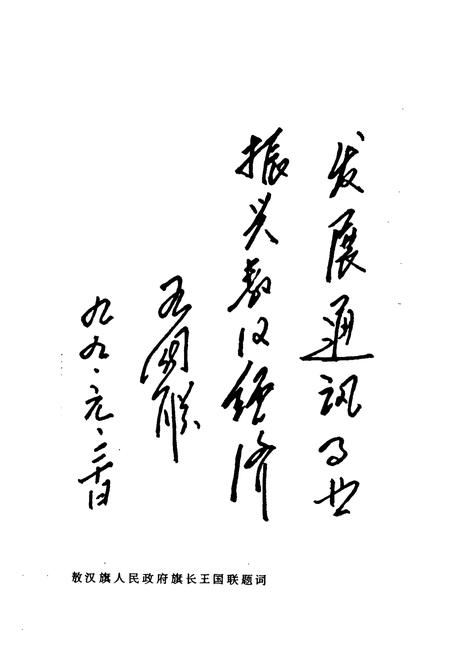 发展通讯事业
振兴敖汉经济
王国联
九九·元·二十日
敖汉旗人民政府旗长王国联题词